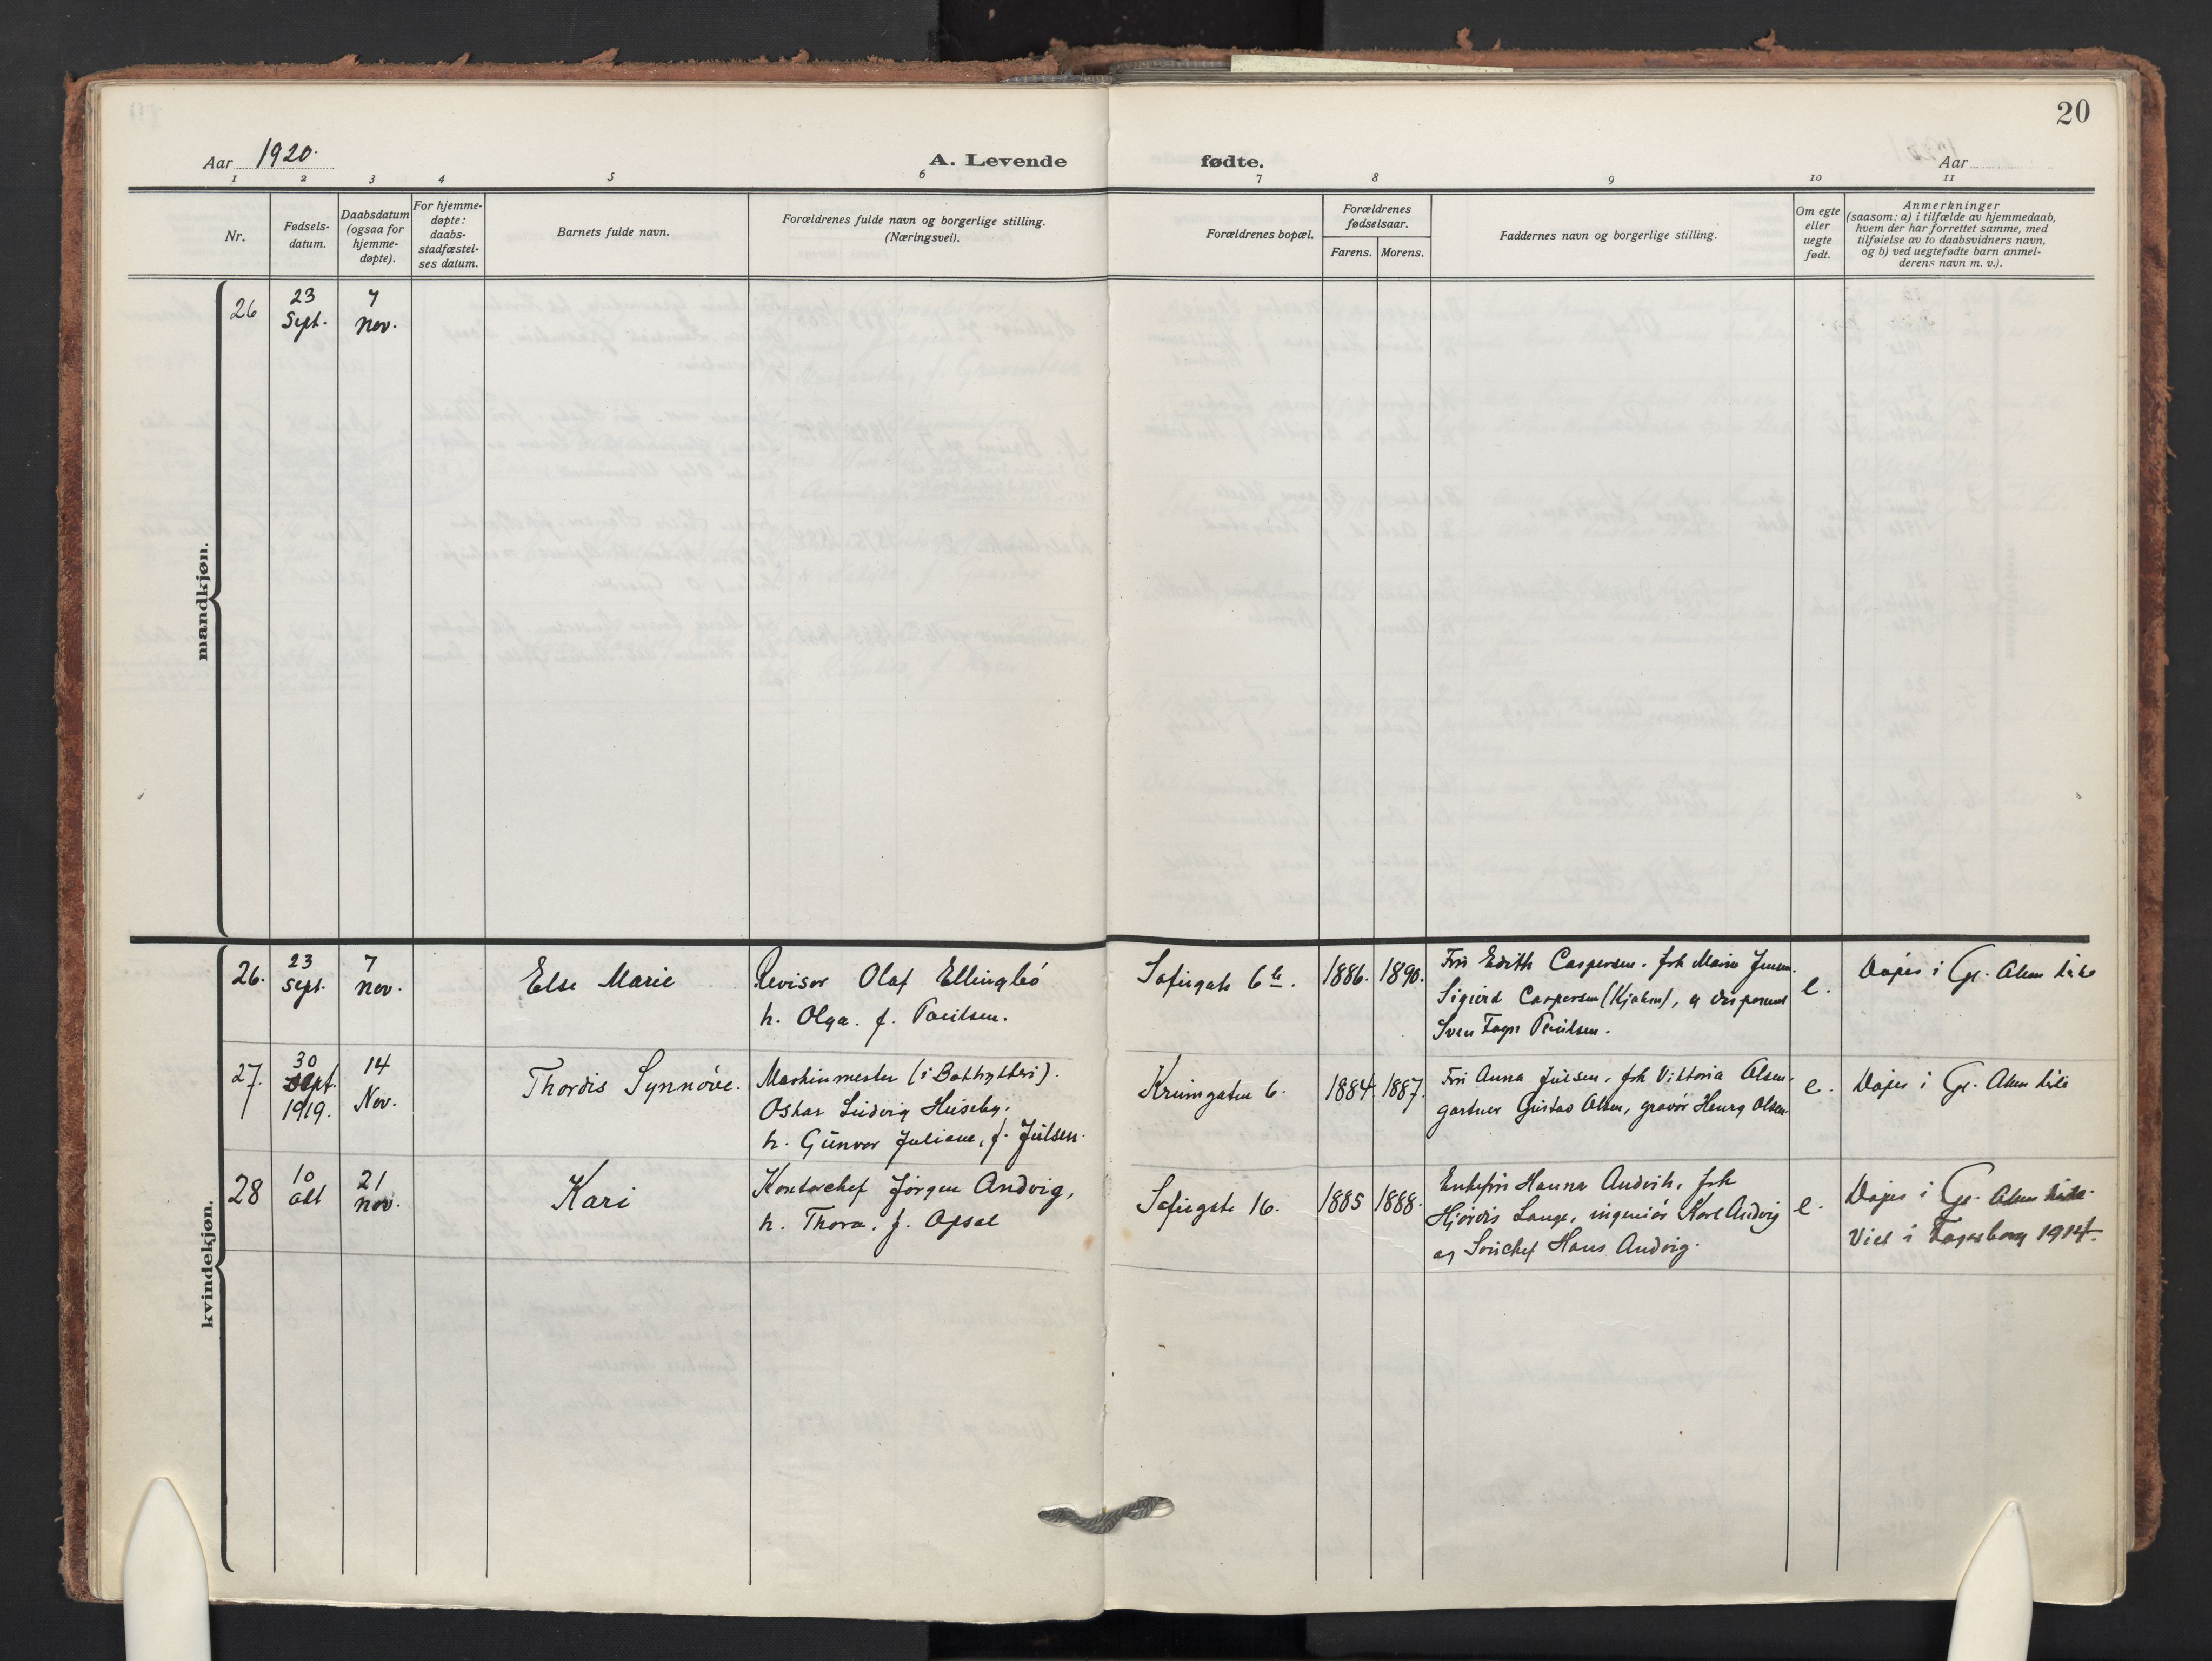 20
Aar 1920.
A. Levende
fødte.
Aar
1 2 3 4 5 6 7 8 9 10 11
Nr.
Fødsels-
datum.
Daabsdatum
(ogsaa for
hjemme-
døpte).
For hjemme-
døpte:
daabs-
stadfæstel-
ses datum.
Barnets fulde navn.
Forældrenes fulde navn og borgerlige stilling.
(Næringsvei).
Forældrenes bopæl.
Forældrenes
fødselsaar.
Farens. Morens.
Faddernes navn og borgerlige stilling.
Om egte
eller
uegte
født.
Anmerkninger
(saasom: a) i tilfælde av hjemmedaab,
hvem der har forrettet samme, med
tilføielse av to daabsvidners navn,
og b) ved uegtefødte barn anmel-
derens navn m. v.).
mandkjøn.
26
23
Sept.
7
Nov.
kvindekjøn.
26.
23
Sept.
7
Nov.
Else Marie
Revisor Olaf Ellingbó
h. Olga. f. Paulsen.
Sofiegate 6b.
1886. 1890.
Fru Edith Caspersen. frk Marie Jensen.
Sigurd Caspersen (Kjøbm), og disponent
Sven Paulsen.
e.
Døpt i Gl. Aker kirke
27.
30
Sept.
1919.
14
Nov.
Thordis Synnóve.
Maskinmester (i
Oskar Ludvig Huseby.
h. Gunvor Juliane, f. Julsen.
6.
1884. 1887.
Fru Anna Julsen, frk Viktoria Olsen.
gartner Gustav Olsen, gravór Henry Olsen
e.
Døpt i Gl. Aker kirke
28
10
Okt
21
Nov.
Kari
Kontorchef Jórgen Andvig,
h. Thora. f. Opsal
Sofiegate 16.
1885 1888.
Enkefru Hanna Andvik, frk
Hjórdis Lange, ingeniór Karl Andvig
og Hans Andvig.
e.
Døpt i Gl. Aker kirke.
Viet i Fagerborg 1914.